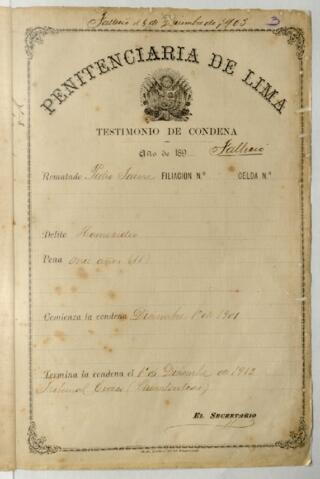 Falleció el 8 de Diciembre de 1903
3
PENITENCIARIA DE LIMA
TESTIMONIO DE CONDENA
Año de 189
Falleció
Rematado Pedro FILIACION N.° CELDA N.°
Delito Homicidio
Pena once años (11)
Comienza la condena Diciembre 1° de 1901
Termina la condena el 1° de Diciembre de 1912
Tribunal
EL SECRETARIO